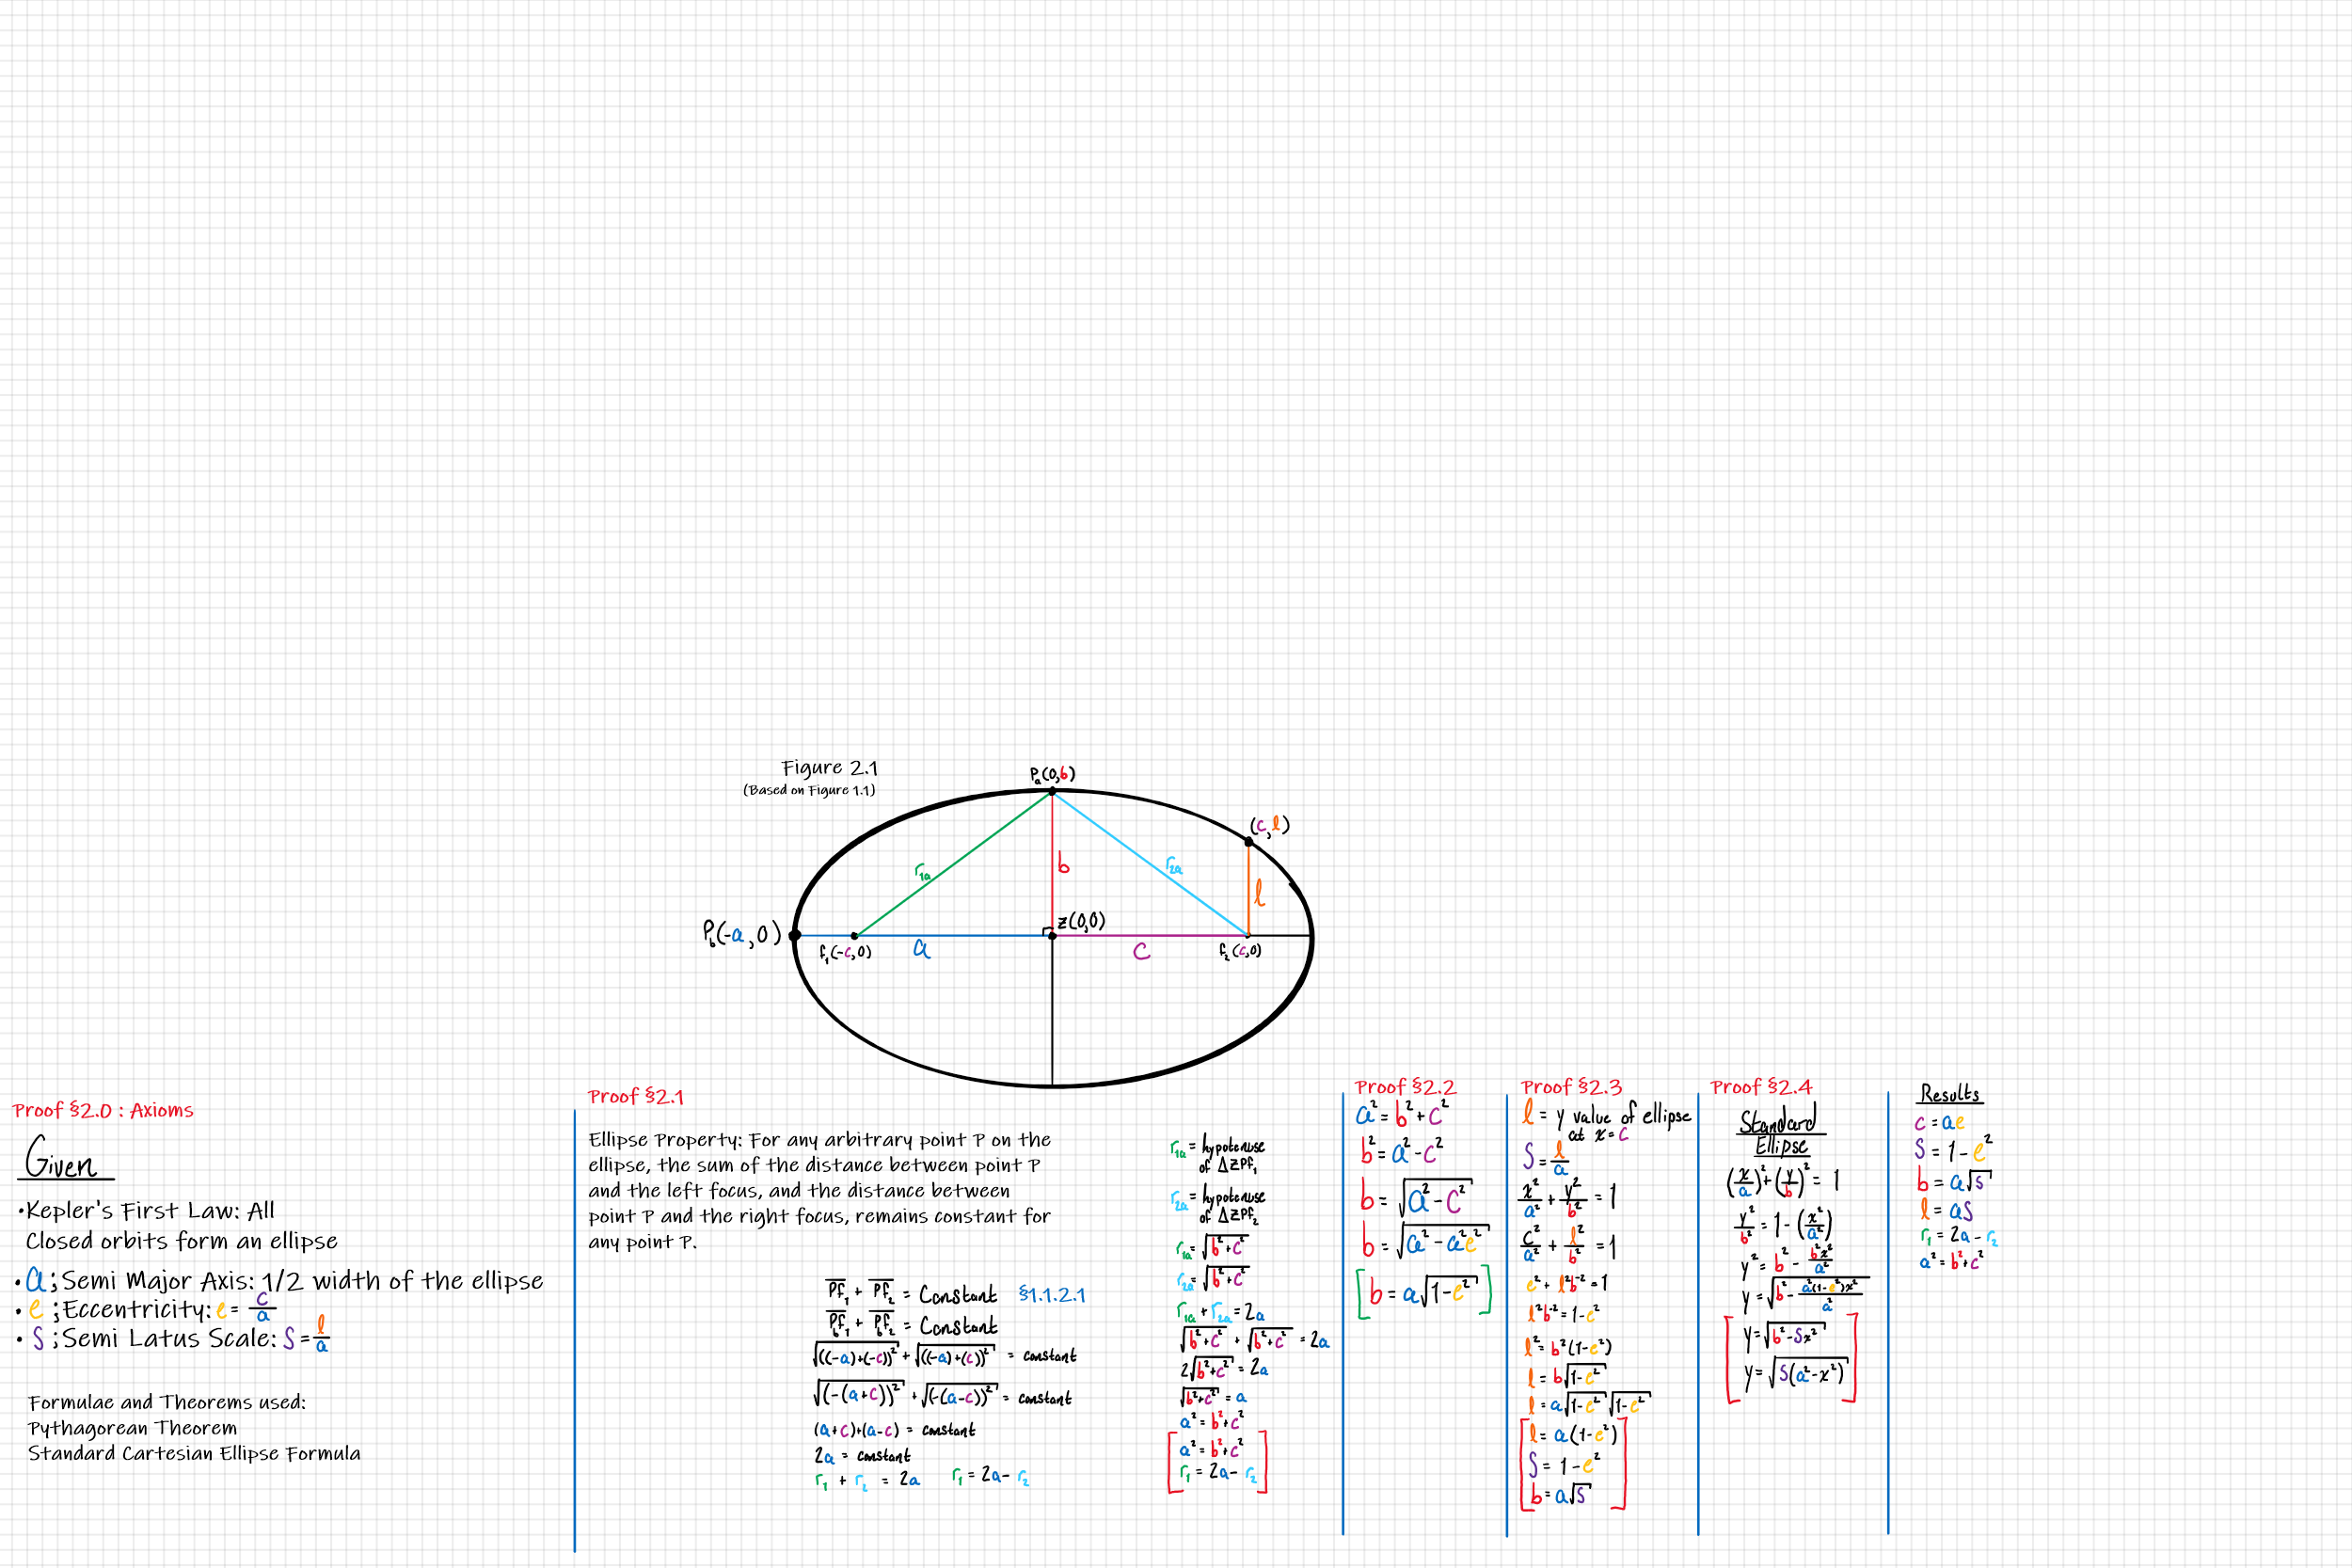 Figure 2.1
(Based on Figure 1.1)
Pₐ(0,b)
(c,l)
r₁ₐ
b
r₂ₐ
l
P_b(-a,0)
z(0,0)
f₁(-c,0)
a
c
f₂(c,0)
Proof §2.0 : Axioms
Given
•Kepler's First Law: All
Closed orbits form an ellipse
•a; Semi Major Axis: 1/2 width of the ellipse
•e; Eccentricity: e = c/a
•S; Semi Latus Scale: S = l/a
Formulae and Theorems used:
Pythagorean Theorem
Standard Cartesian Ellipse Formula
Proof §2.1
Ellipse Property: For any arbitrary point P on the
ellipse, the sum of the distance between point P
and the left focus, and the distance between
point P and the right focus, remains constant for
any point P.
Pf₁ + Pf₂ = Constant §1.1.2.1
P_bf₁ + P_bf₂ = Constant
√((-a)+(-c))² + √((-a)+(c))² = constant
√(-(a+c))² + √(-(a-c))² = constant
(a+c)+(a-c) = constant
2a = constant
r₁ + r₂ = 2a r₁ = 2a - r₂
r₁ₐ = hypotenuse
of ΔZPf₁
r₂ₐ = hypotenuse
of ΔZPf₂
r₁ₐ = √(b²+c²)
r₂ₐ = √(b²+c²)
r₁ₐ + r₂ₐ = 2a
√(b²+c²) + √(b²+c²) = 2a
2√(b²+c²) = 2a
√(b²+c²) = a
a² = b²+c²
a² = b²+c²
r₁ = 2a - r₂
Proof §2.2
a² = b² + c²
b² = a² - c²
b = √(a² - c²)
b = √(a² - a²e²)
b = a√(1-e²)
Proof §2.3
l = y value of ellipse
at x = c
S = l/a
x²/a² + y²/b² = 1
c²/a² + l²/b² = 1
e² + l²b⁻² = 1
l²b⁻² = 1-e²
l² = b²(1-e²)
l = b√(1-e²)
l = a√(1-e²)√(1-e²)
l = a(1-e²)
S = 1-e²
b = a√S
Proof §2.4
Standard
Ellipse
(x/a)² + (y/b)² = 1
y²/b² = 1 - (x²/a²)
y² = b² - b²x²/a²
y = √(b² - a²(1-e²)x²/a²)
y = √(b²-Sx²)
y = √(S(a²-x²))
Results
c = ae
S = 1-e²
b = a√S
l = aS
r₁ = 2a - r₂
a² = b²+c²